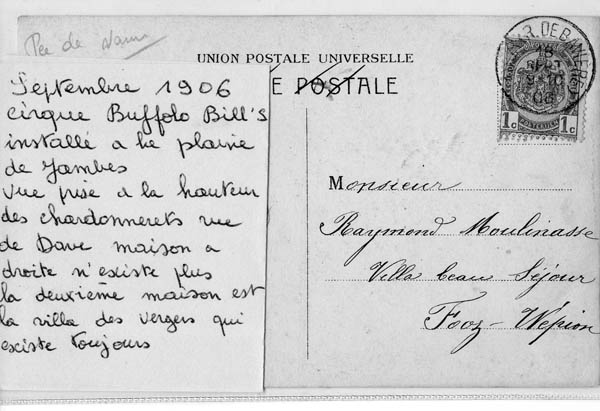 Pce de Namur
UNION POSTALE UNIVERSELLE
E POSTALE
Septembre 1906
cirque Buffolo Bill's
installé a la plaine
de Jambes
Vue prise a la hauteur
des chardonnerets rue
de Dave maison a
droite n'existe plus
la deuxième maison est
la villa des vergers qui
existe toujours
18
SEPT
06
1c 1c
Monsieur
Raymond Moulinasse
Villa beau Séjour
Fooz-Wépion